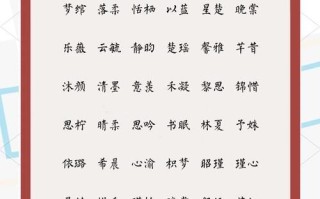 梦绾 落柔 恬栖 以蓝 星楚 晚棠
乐薇 云毓 静昀 楚瑶 馨雅 芊昔
沐颜 清墨 意羡 禾凝 黎思 锦惜
思柠 晴柔 思吟 书眠 林夏 予姝
依璐 希晨 心渝 枳梦 昭瑾 瑾心